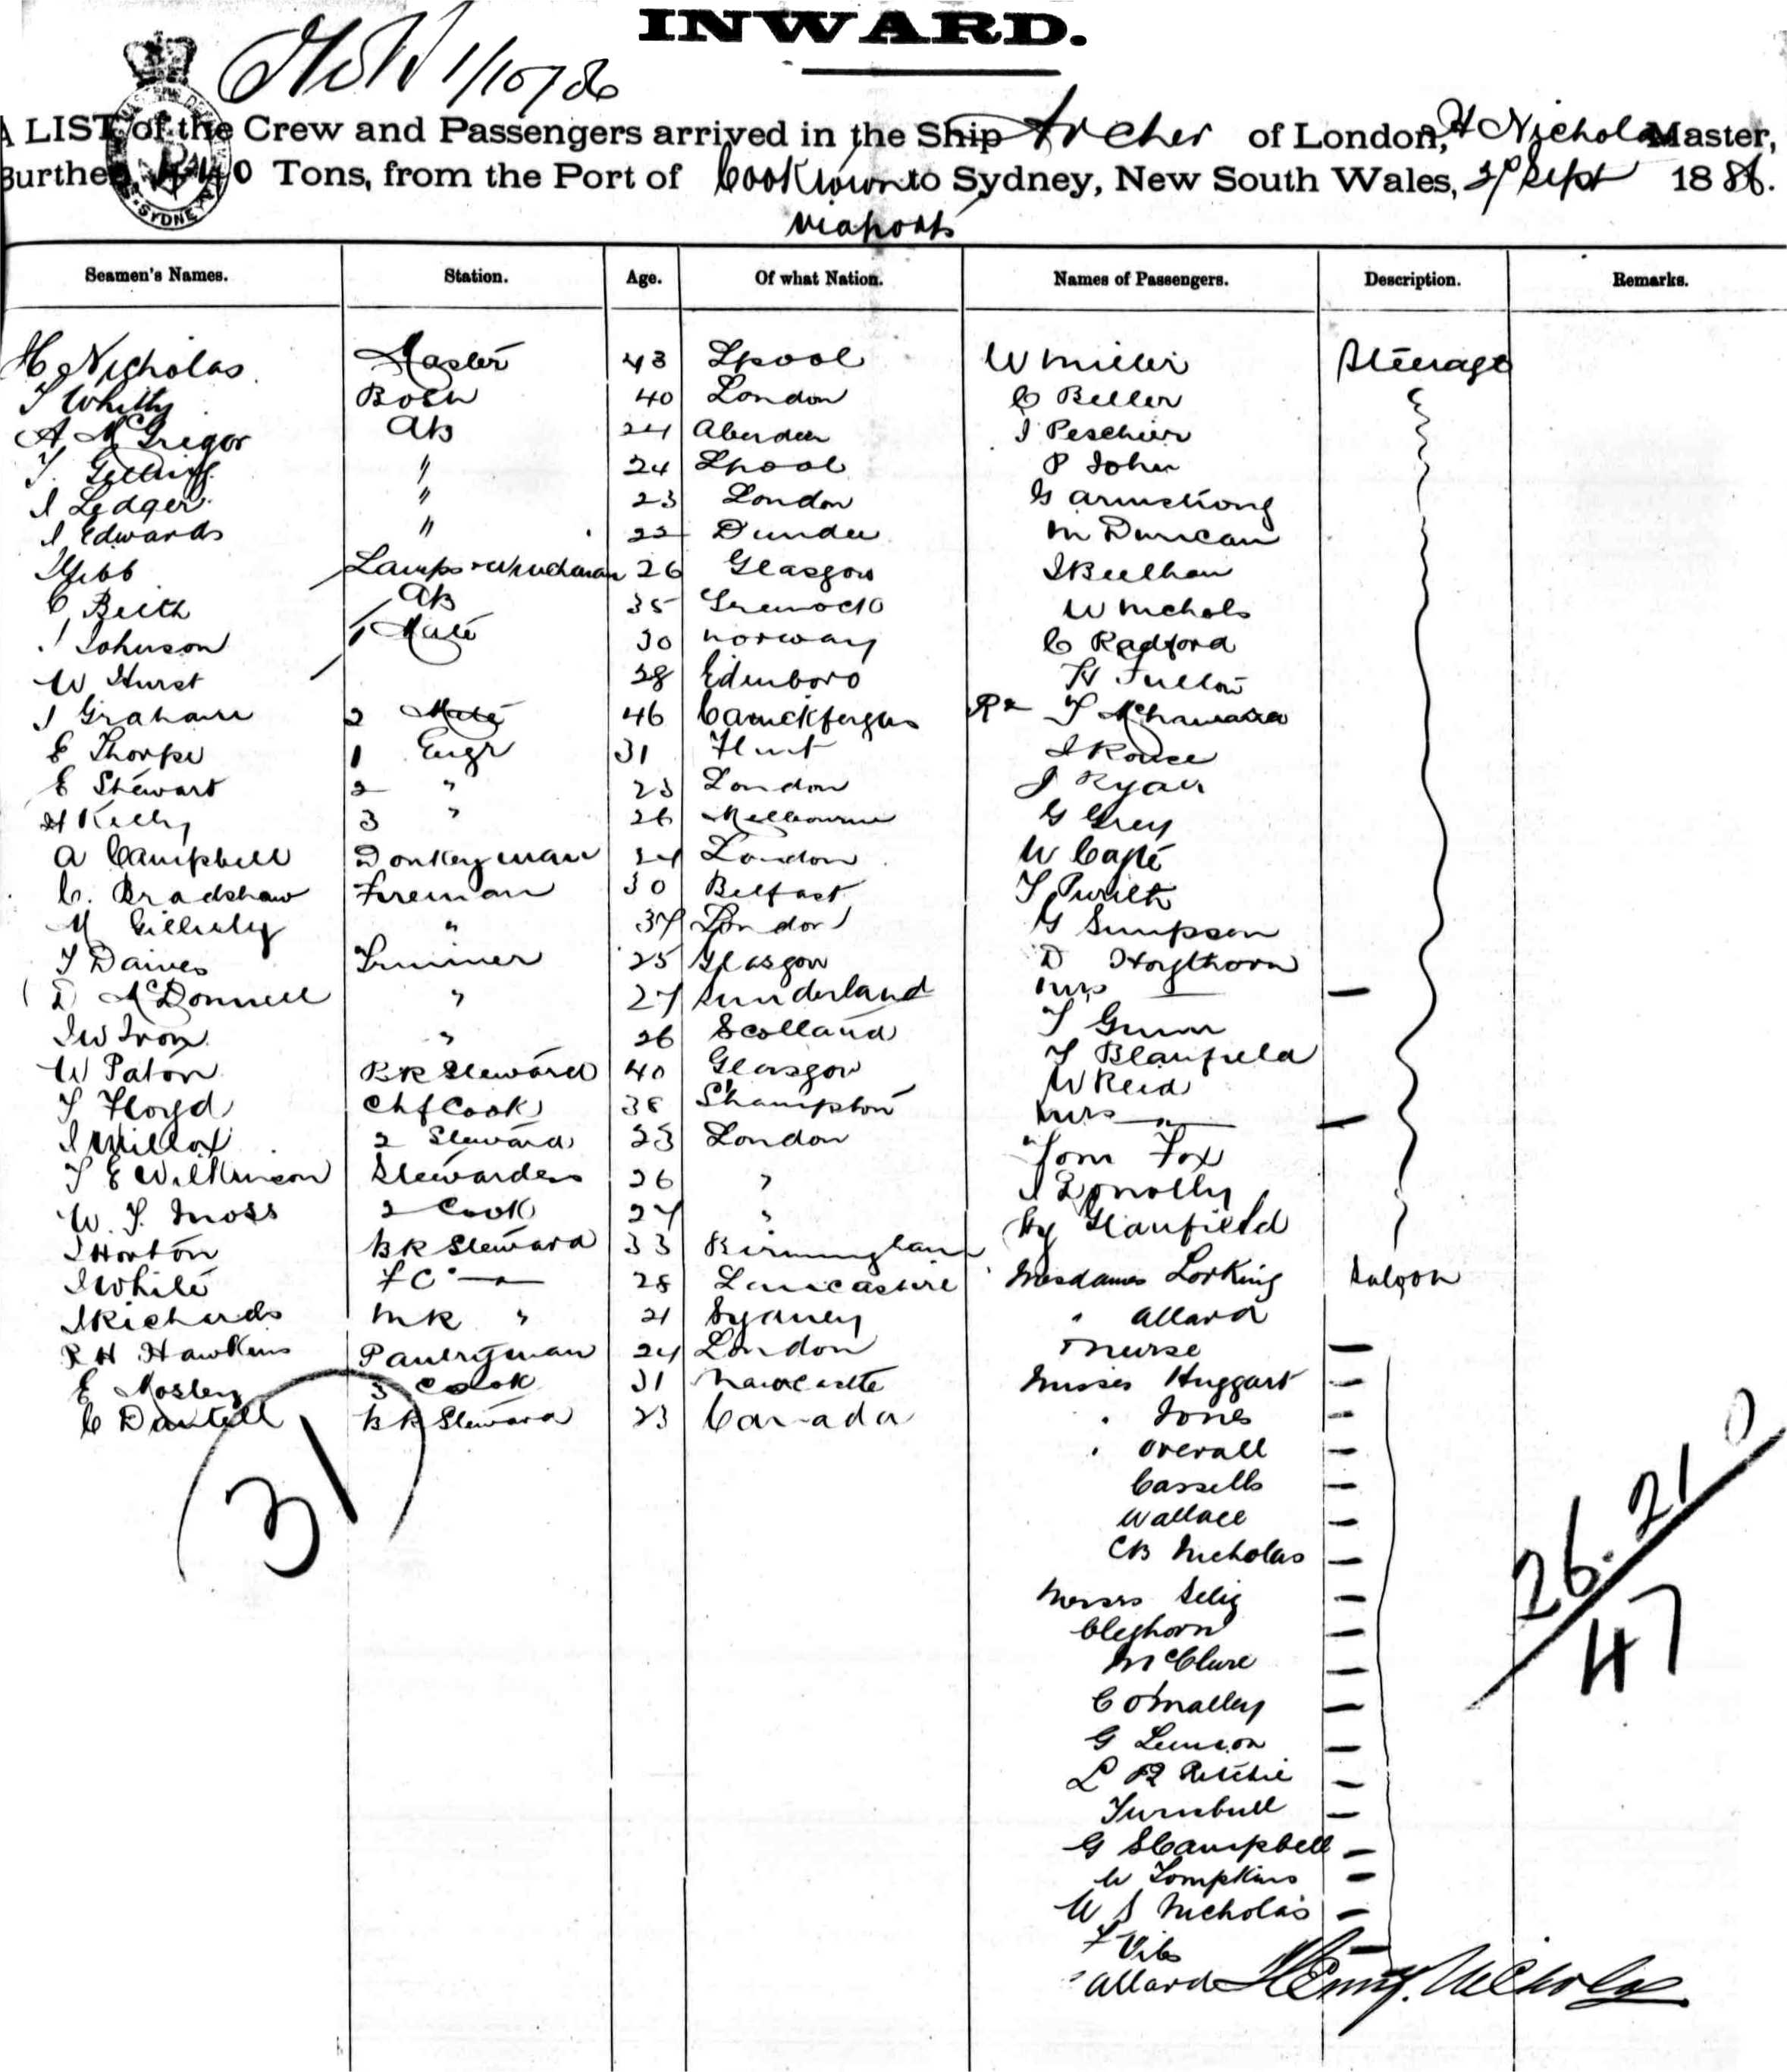 INWARD.
1/10/86
A LIST of the Crew and Passengers arrived in the Ship Archer of London, H Nicholas Master,
Burthen Tons, from the Port of Cooktown to Sydney, New South Wales, Sept 1886.
via ports
SYDNEY
Seamen's Names. Station. Age. Of what Nation. Names of Passengers. Description. Remarks.
H Nicholas Master 43 Lpool W Miller Steerage
T Whitty Bosn 40 London C Beller
A McGregor AB 24 Aberdeen J Peschier
T. " 24 Lpool P John
J Ledger " 23 London G Armstrong
J Edwards " 22 Dundee M Duncan
Gebb Lamps & Winchman 26 Glasgow J Beelham
C Beith AB 35 Greenock W Nichols
J Johnson 1 Mate 30 Norway C Radford
W Hurst 28 Edinboro H
J Graham 2 Mate 46 Carrickfergus T McNamara
E Thorpe 1 Engr 31 Flint J Rouse
E Stewart 2 " 23 London J Ryan
H Kelly 3 " 26 Melbourne G Grey
A Campbell Donkeyman 34 London W Cape
C. Bradshaw Fireman 30 Belfast T
M " 37 London G Simpson
T Daives Trimmer 25 Glasgow D Hoythorn
D McDonnell " 27 Sunderland Mrs —
JW Iron " 26 Scotland T Gunn
W Paton BK Steward 40 Glasgow T Blanfield
T Floyd Chf Cook 38 Shampton W Reid
J Millox 2 Steward 23 London Mrs "
T E Wilkinson Stewardess 26 " Tom Fox
W. J. Moss 2 Cook 27 " J Donolly
J Horton BK Steward 33 Birmingham Hy Glanfield
J White FC " 28 Lancashire Mesdames Lorking Saloon
J Richards MK " 21 Sydney " Allard
R H Hawkins Pantryman 24 London Nurse
E Mosley 3 Cook 31 Newcastle Misses Huggart
C Dartell BK Steward 23 Canada " Jones
31
" Overall
Cassells
Wallace
CB Nicholas
Messrs Selig
Cleghorn
McClure
C O'Malley
G Lemon
L R Ritchie
Turnbull
G S Campbell
W Tompkins
W S Nicholas
F Viles
Allard
26. 21
47
Henry Nicholas